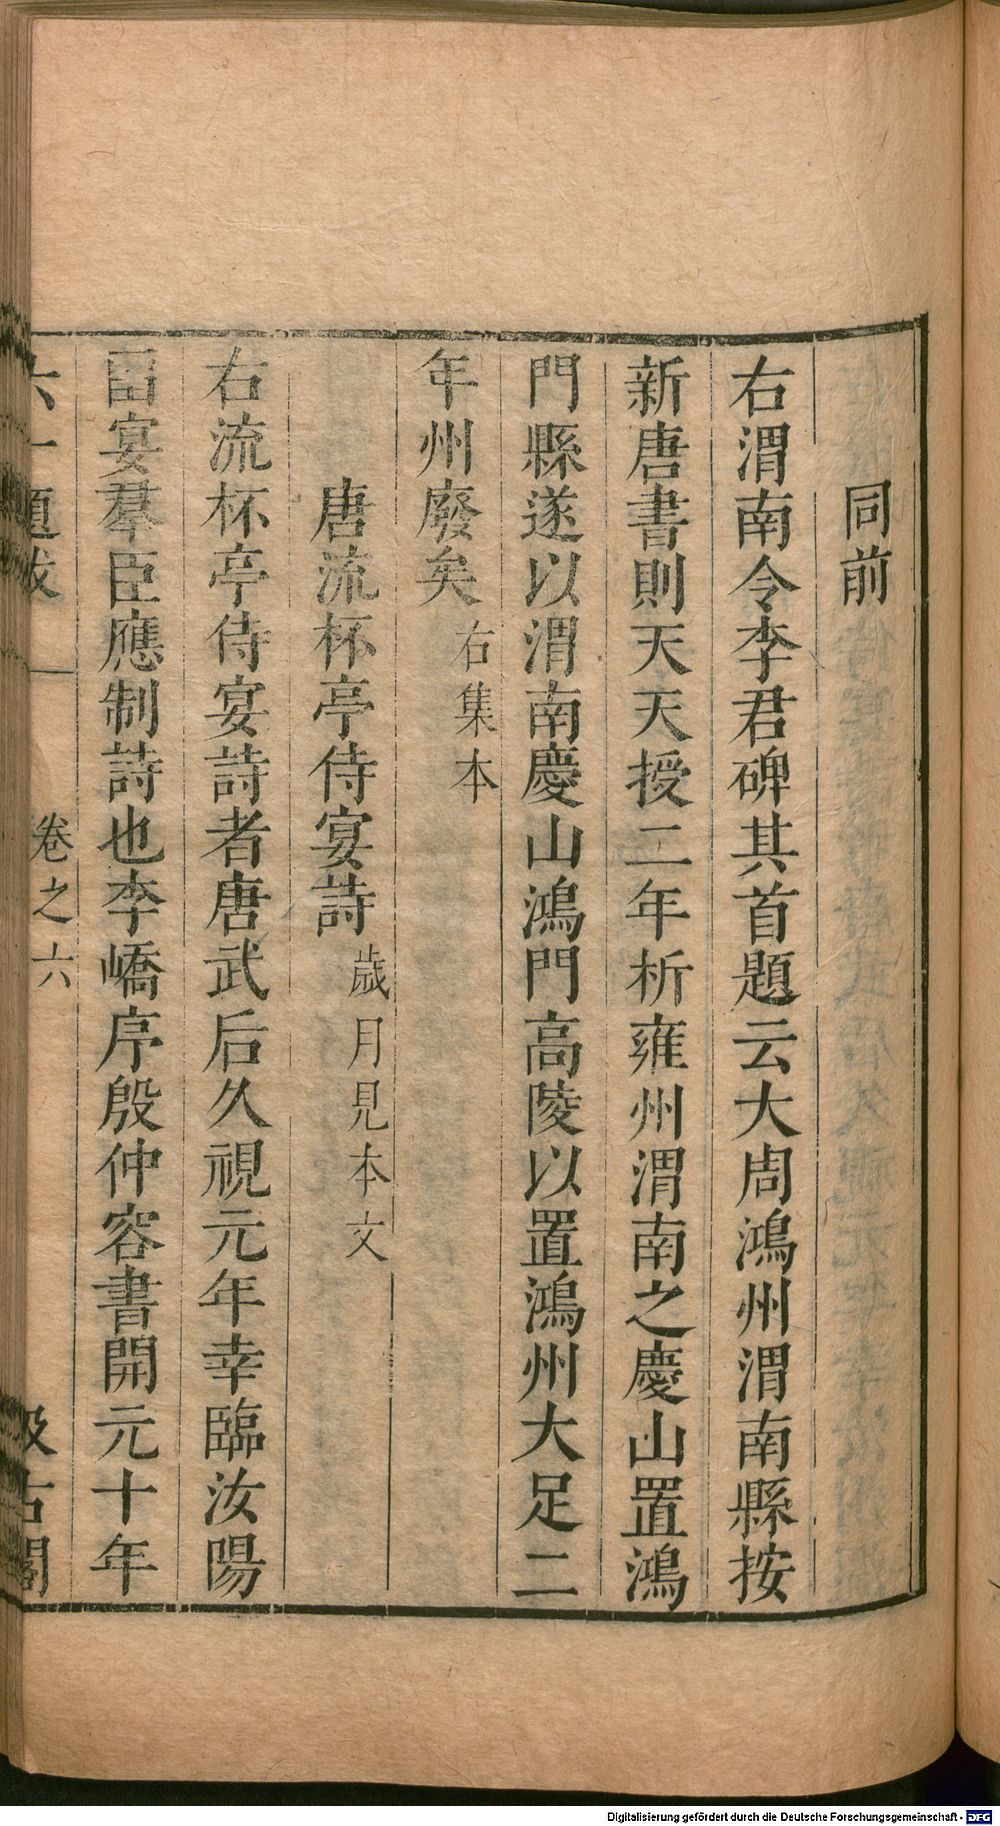 同前
右渭南令李君碑其首題云大周鴻州渭南縣按
新唐書則天天授二年析雍州渭南之慶山置鴻
門縣遂以渭南慶山鴻門高陵以置鴻州大足二
年州廢矣右集本
唐流杯亭侍宴詩歲月見本文
右流杯亭侍宴詩者唐武后久視元年幸臨汝陽
畱宴羣臣應制詩也李嶠序殷仲容書開元十年
六一題跋 卷之六 汲古閣
Digitalisierung gefördert durch die Deutsche Forschungsgemeinschaft - DFG